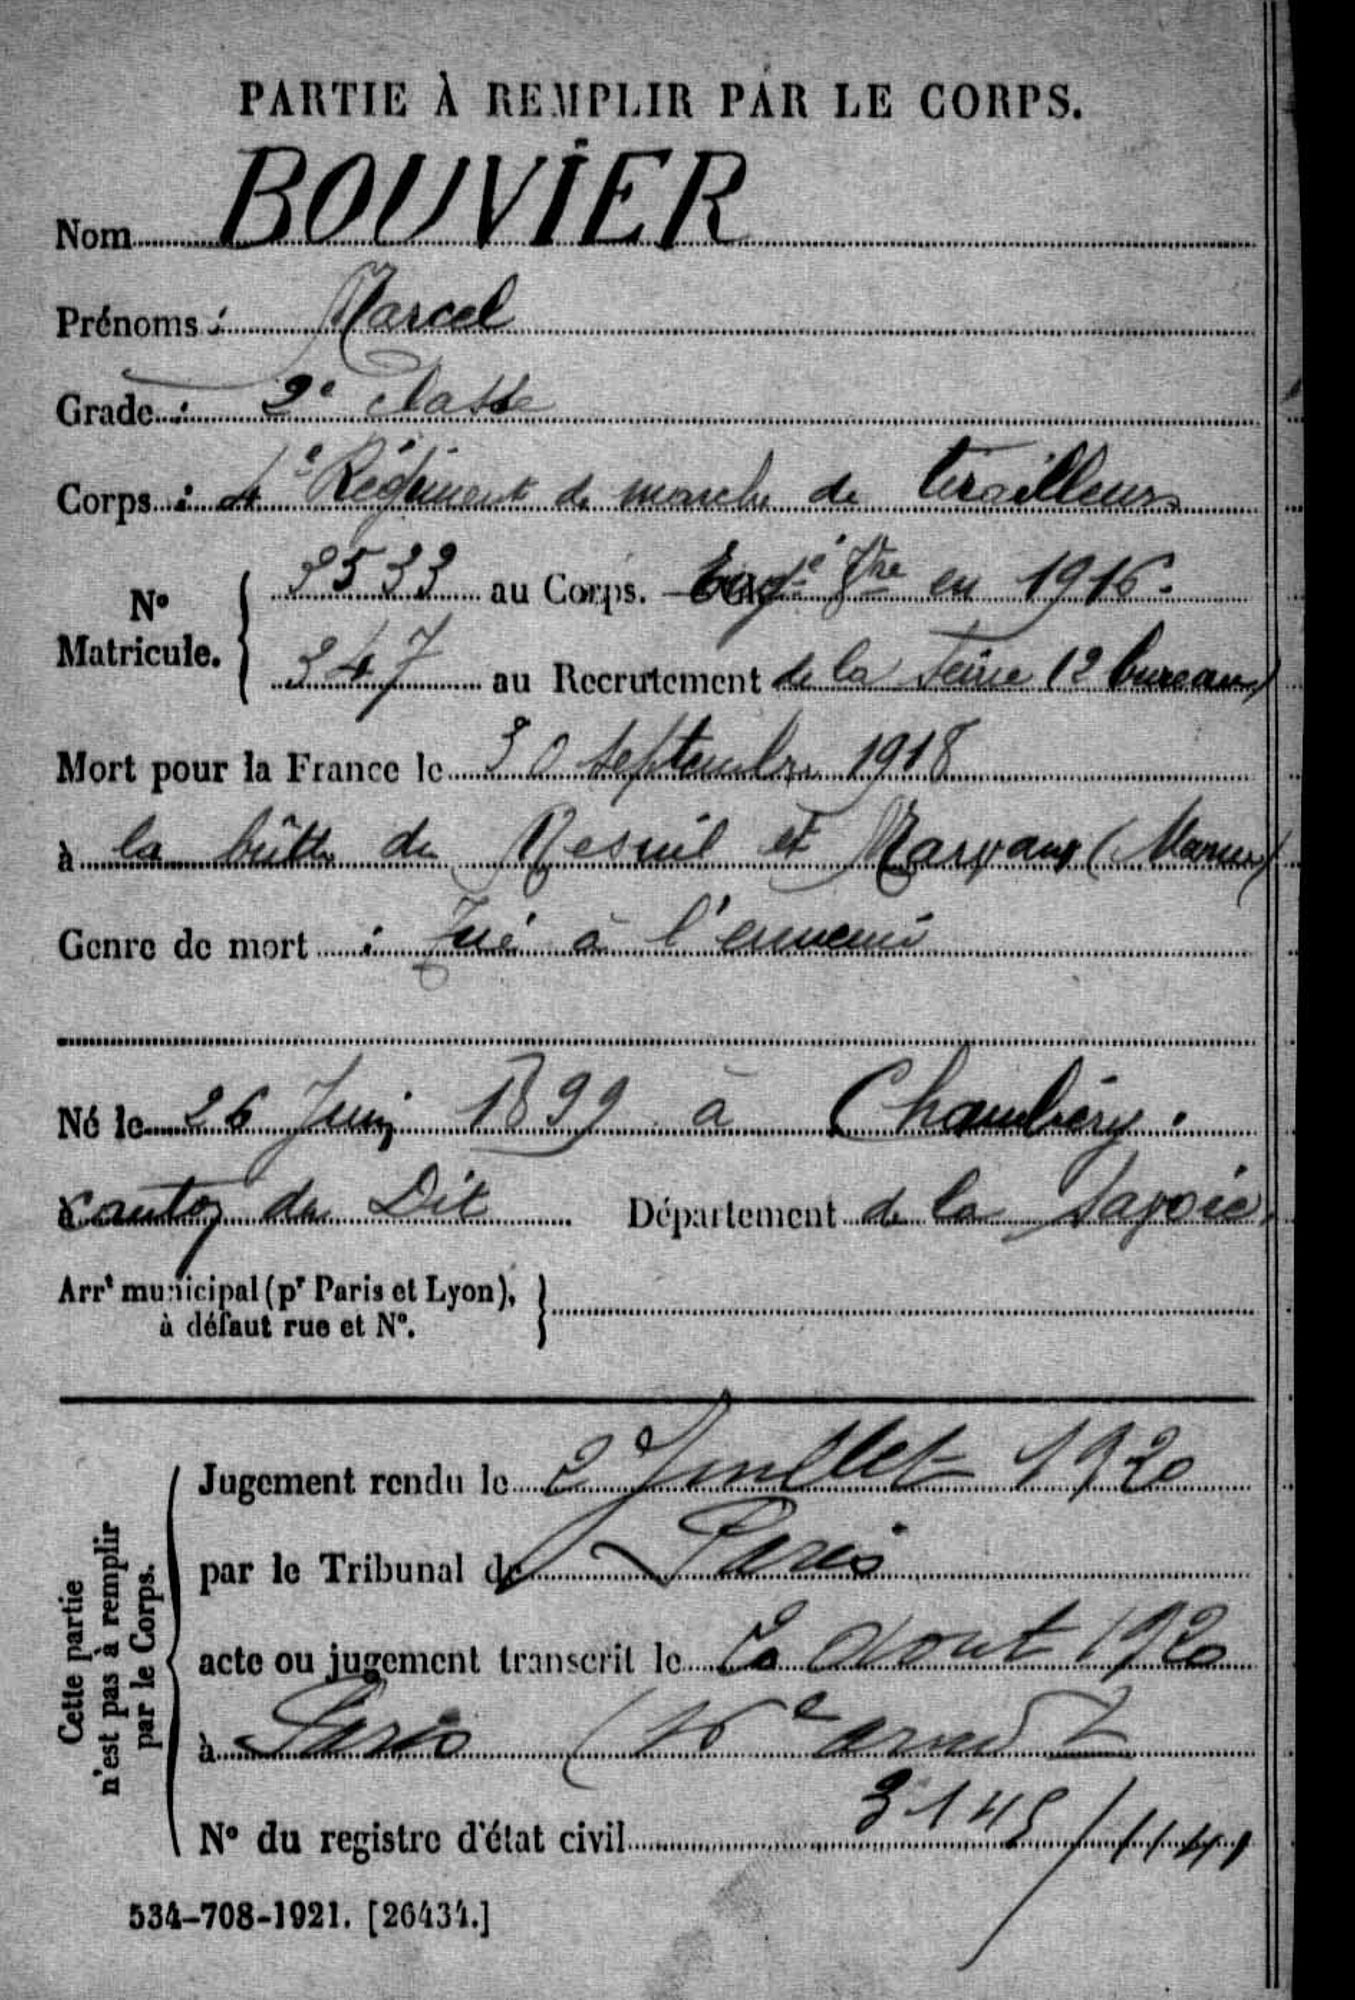 PARTIE À REMPLIR PAR LE CORPS.
Nom BOUVIER
Prénoms : Marcel
Grade : 2e classe
Corps : 4e Régiment de marche de tirailleurs
No Matricule. { 3533 au Corps. Engé Vre en 1916.
347 au Recrutement de la Seine (2 bureau)
Mort pour la France le 30 septembre 1918
à la butte du Mesnil et Marvaux (Marne)
Genre de mort : Tué à l'ennemi
Né le 26 Juin 1899 à Chambéry.
canton du Dit Département de la Savoie
Arrt municipal (pr Paris et Lyon),
à défaut rue et No.
Cette partie
n'est pas à remplir
par le Corps.
Jugement rendu le 2 Juillet 1920
par le Tribunal de Paris
acte ou jugement transcrit le Août 1920
à Paris (16e arrondt
No du registre d'état civil 3145/1141
534-708-1921. [26434.]